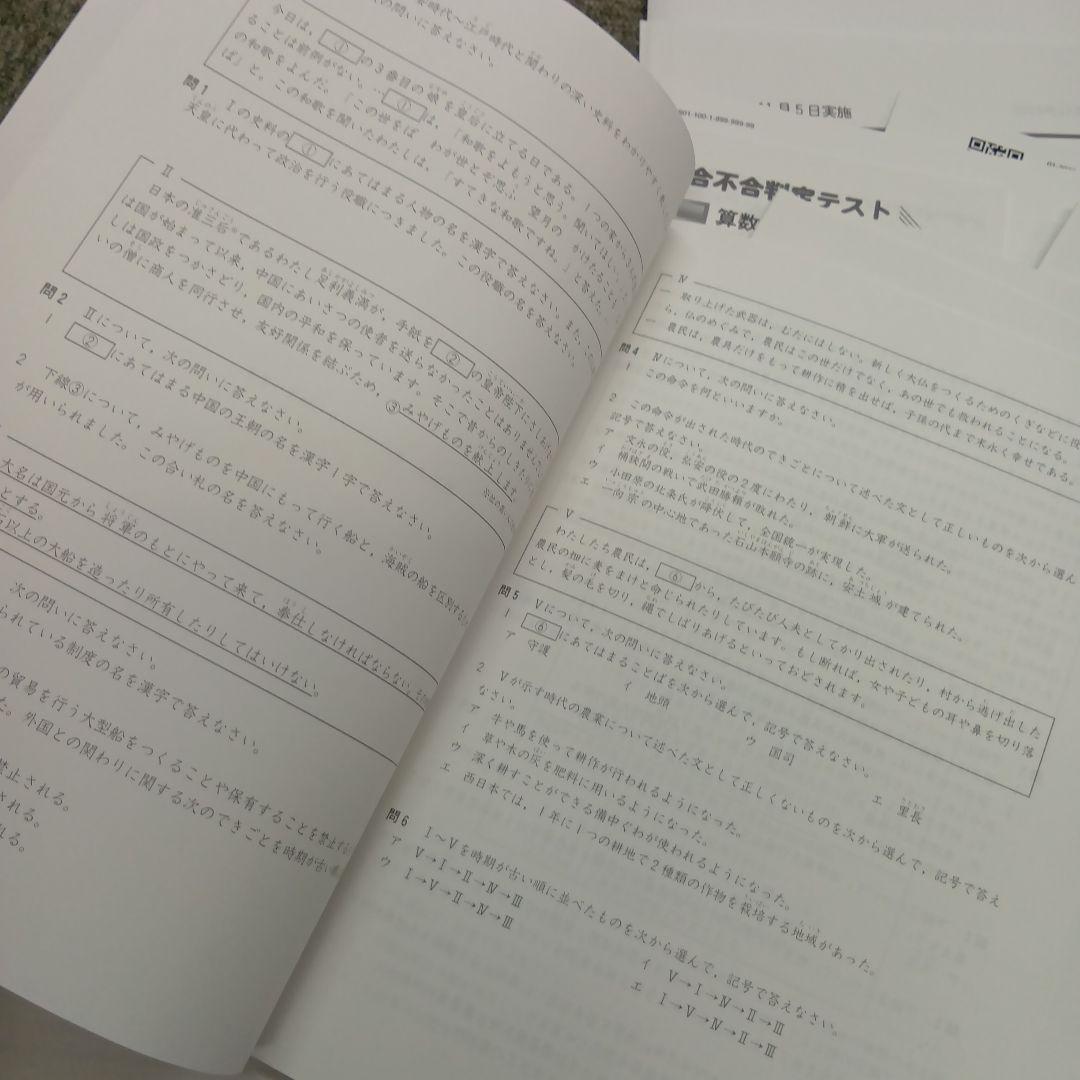 時代～江戸時代と関わりの深い史料をわかりやすく
の問いに答えなさい。
今日は，①の3番目の娘を皇后に立てる日である。1つの家から
ることは前例がない。…①は，「和歌をよもうと思う。聞いてほしい」
の和歌をよんだ。「この世をば わが世とぞ思ふ 望月の かけたること
ば」と。この和歌を聞いたわたしは，「すてきな和歌ですね。」と答えた。
問1 Ⅰの史料の①にあてはまる人物の名を漢字で答えなさい。また，
天皇に代わって政治を行う役職につきました。この役職の名を答えなさい。
Ⅱ
日本の准三后であるわたし足利義満が，手紙を②の皇帝陛下にさしあ
は国が始まって以来，中国にあいさつの使者を送らなかったことはありませ
しは国政をつかさどり，国内の平和を保っています。そこで昔からのしきた
いの僧に商人を同行させ，友好関係を結ぶため，③みやげものを献上します。
問2 Ⅱについて，次の問いに答えなさい。
1 ②にあてはまる中国の王朝の名を漢字1字で答えなさい。
2 下線③について，みやげものを中国にもって行く船と，海賊の船を区別する
が用いられました。この合い札の名を答えなさい。
大名は国元から将軍のもとにやって来て，奉仕しなければならない。
とする。
以上の大船を造ったり所有したりしてはいけない。
次の問いに答えなさい。
られている制度の名を漢字で答えなさい。
の貿易を行う大型船をつくることや保有することを禁止する
た。外国との関わりに関する次のできごとを時期が古い
禁止される。
される。
れる。
月5日実施
合不合判定テスト
算数
Ⅳ
一 取り上げた武器は，むだにはしない。新しく大仏をつくるためのくぎなどに
ら，仏のめぐみで，農民はこの世だけでなく，あの世でも救われることになる。
一 農民は，農具だけをもって耕作に精を出せば，子孫の代まで末永く幸せである。
問4 Ⅳについて，次の問いに答えなさい。
1 この命令を何といいますか。
2 この命令が出された時代のできごとについて述べた文として正しいものを次から選ん
記号で答えなさい。
ア 文永の役，弘安の役の2度にわたり，朝鮮に大軍が送られた。
イ 桶狭間の戦いで武田勝頼が敗れた。
ウ 小田原の北条氏が降伏して，全国統一が実現した。
エ 一向宗の中心地であった石山本願寺の跡に，安土城が建てられた。
Ⅴ
わたしたち農民は，⑥から，たびたび人夫としてかり出されたり，村から逃げ出した
農民の畑に麦をまけと命じられたりしています。もし断れば，女や子どもの耳や鼻を切り落
とし，髪の毛を切り，縄でしばりあげるといっておどされます。
問5 Ⅴについて，次の問いに答えなさい。
1 ⑥にあてはまることばを次から選んで，記号で答えなさい。
ア 守護 イ 地頭 ウ 国司 エ 里長
2 Ⅴが示す時代の農業について述べた文として正しくないものを次から選んで，記号で答え
なさい。
ア 牛や馬を使って耕作が行われるようになった。
イ 草や木の灰を肥料に用いるようになった。
ウ 深く耕すことができる備中ぐわが使われるようになった。
エ 西日本では，1年に1つの耕地で2種類の作物を栽培する地域があった。
問6 Ⅰ～Ⅴを時期が古い順に並べたものを次から選んで，記号で答えなさい。
ア Ⅴ→Ⅰ→Ⅱ→Ⅳ→Ⅲ イ Ⅴ→Ⅰ→Ⅳ→Ⅱ→Ⅲ
ウ Ⅰ→Ⅴ→Ⅱ→Ⅳ→Ⅲ エ Ⅰ→Ⅴ→Ⅳ→Ⅱ→Ⅲ